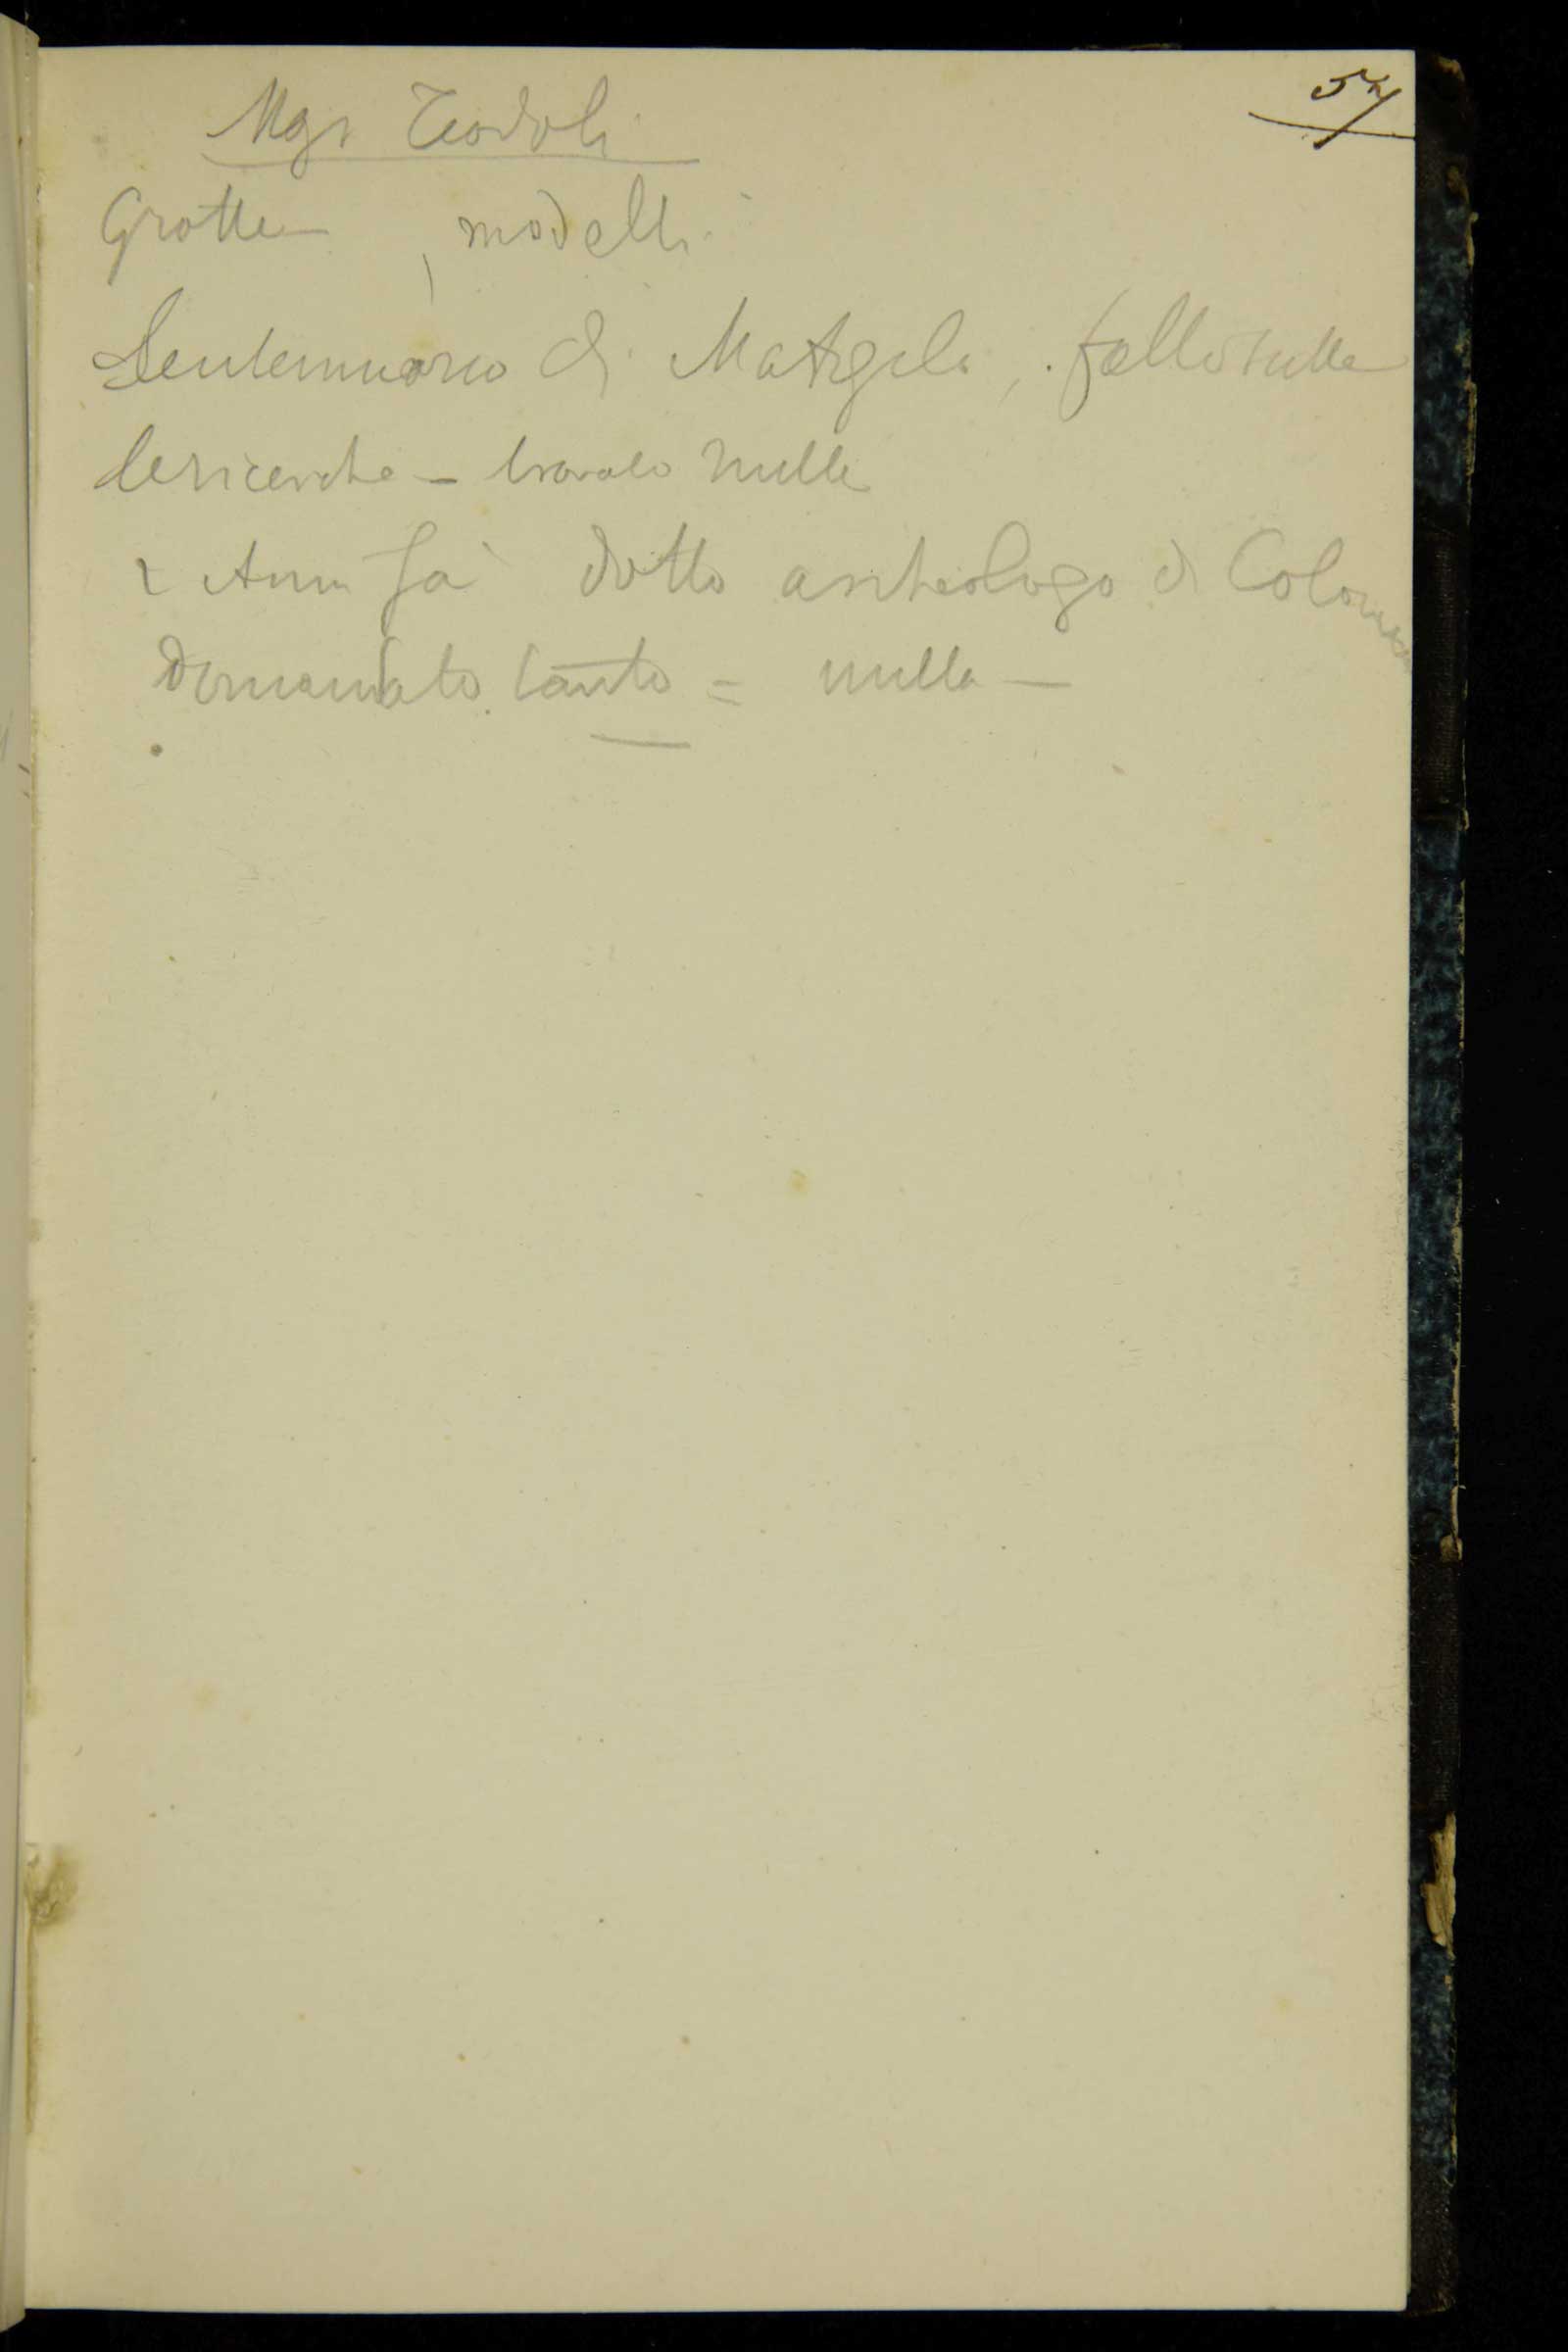 52
Mgr Teodoli
Grotte , modelli
Centennario di MAngelo, fatto tutte
le ricerche – trovato nulla
2 Anni fa dotto archeologo di Colonia
domandato tanto = nulla —